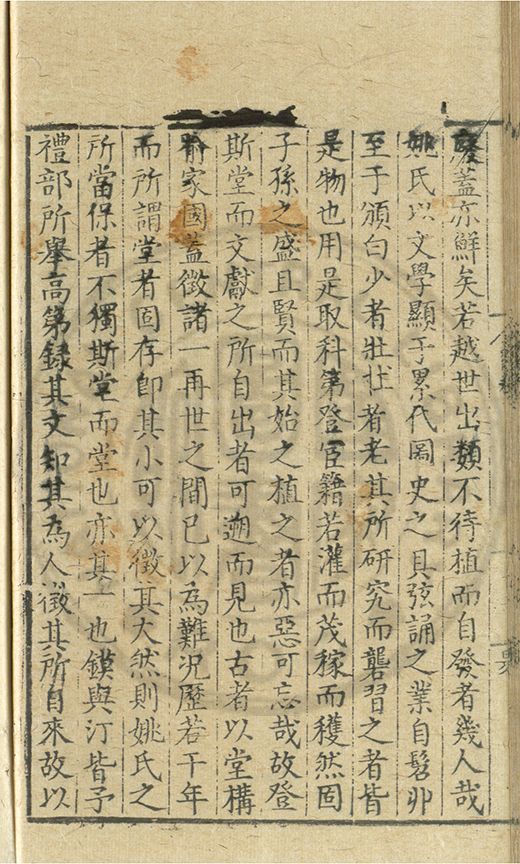 廢蓋亦鮮矣若越世出類不待植而自發者幾人哉
姚氏以文學顯于累代圖史之具弦誦之業自髫丱
至于頒白少者壯壯者老其所研究而襲習之者皆
是物也用是取科第登宦籍若灌而茂稼而穫然固
子孫之盛且賢而其始之植之者亦惡可忘哉故登
斯堂而文獻之所自出者可遡而見也古者以堂構
喻家國蓋徵諸一再世之間已以為難況歷若干年
而所謂堂者固存卽其小可以徵其大然則姚氏之
所當保者不獨斯堂而堂也亦其一也鏌與汀皆予
禮部所舉高第錄其文知其為人徵其所自來故以